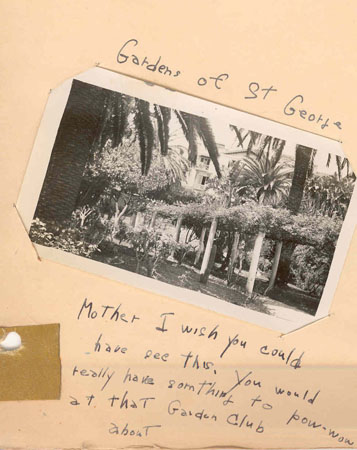 Gardens of St George
Mother I wish you could
have see this. You would
really have somthing to pow-wow
at that Garden Club
about